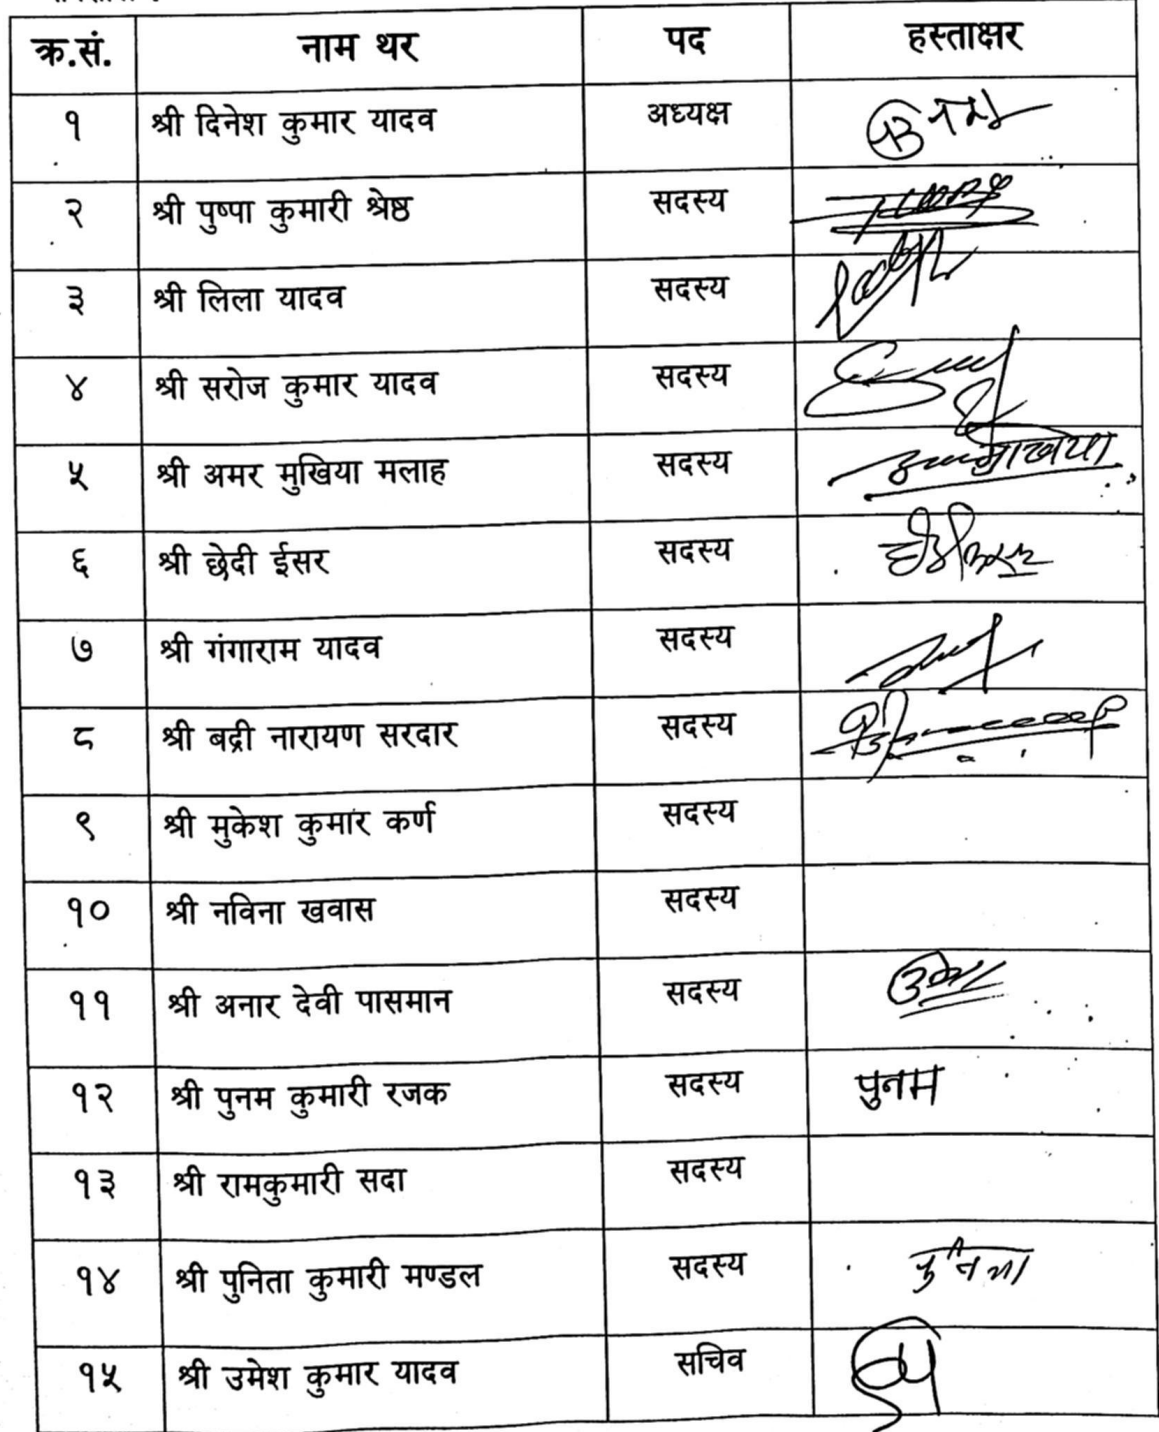 क्र.सं. नाम थर पद हस्ताक्षर
१ श्री दिनेश कुमार यादव अध्यक्ष
२ श्री पुष्पा कुमारी श्रेष्ठ सदस्य
३ श्री लिला यादव सदस्य
४ श्री सरोज कुमार यादव सदस्य
५ श्री अमर मुखिया मलाह सदस्य
६ श्री छेदी ईसर सदस्य
७ श्री गंगाराम यादव सदस्य
८ श्री बद्री नारायण सरदार सदस्य
९ श्री मुकेश कुमार कर्ण सदस्य
१० श्री नविना खवास सदस्य
११ श्री अनार देवी पासमान सदस्य
१२ श्री पुनम कुमारी रजक सदस्य पुनम
१३ श्री रामकुमारी सदा सदस्य
१४ श्री पुनिता कुमारी मण्डल सदस्य
१५ श्री उमेश कुमार यादव सचिव